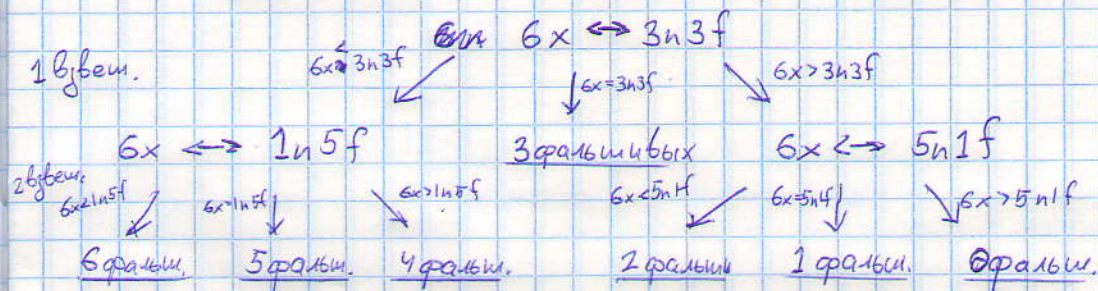 6x ↔ 3n3f
1 взвеш.
6x < 3n3f 6x=3n3f 6x>3n3f
6x ↔ 1n5f 3 фальшивых 6x ↔ 5n1f
2 взвеш.
6x<1n5f 6x=1n5f 6x>1n5f 6x<5n1f 6x=5n1f 6x>5n1f
6 фальш. 5 фальш. 4 фальш. 2 фальш 1 фальш. 0 фальш.